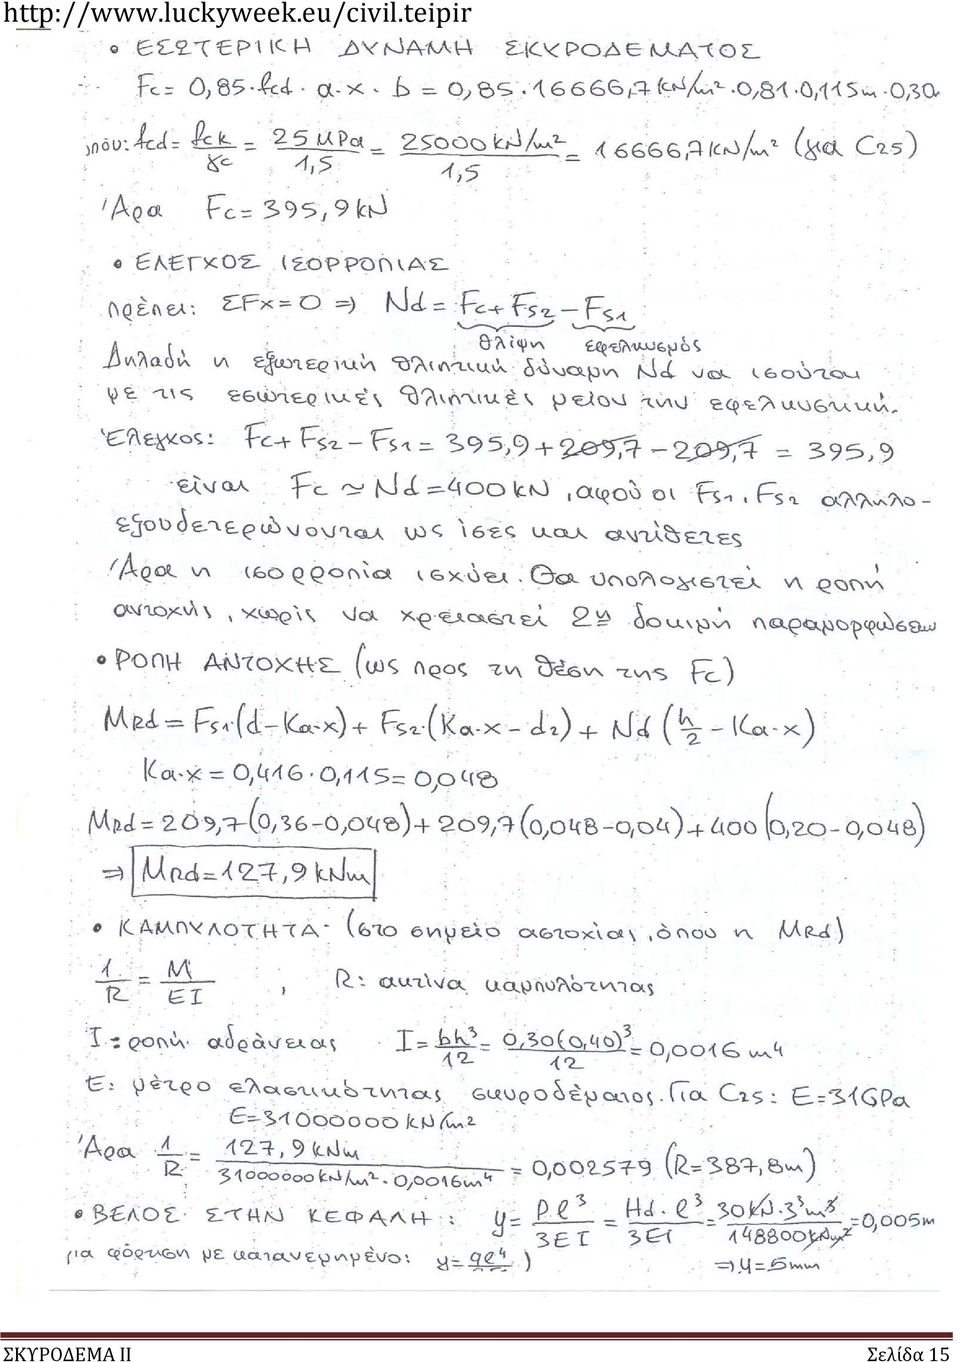 http://www.luckyweek.eu/civil.teipir
• ΕΣΩΤΕΡΙΚΗ ΔΥΝΑΜΗ ΣΚΥΡΟΔΕΜΑΤΟΣ
Fc = 0,85·fcd · α·x · b = 0,85·16666,7 kN/m² ·0,81·0,115m·0,30
όπου: fcd = fck/γc = 25 MPa/1,5 = 25000 kN/m²/1,5 = 16666,7 kN/m² (για C25)
Άρα Fc = 395,9 kN
• ΕΛΕΓΧΟΣ ΙΣΟΡΡΟΠΙΑΣ
πρέπει: ΣFx = 0 ⇒ Nd = Fc + Fs2 − Fs1
θλίψη εφελκυσμός
Δηλαδή η εξωτερική θλιπτική δύναμη Nd να ισούται
με τις εσωτερικές θλιπτικές μείον την εφελκυστική.
Έλεγχος: Fc + Fs2 − Fs1 = 395,9 + 209,7 − 209,7 = 395,9
είναι Fc ≃ Nd = 400 kN, αφού οι Fs1, Fs2 αλληλο-
εξουδετερώνονται ως ίσες και αντίθετες
Άρα η ισορροπία ισχύει. Θα υπολογιστεί η ροπή
αντοχής, χωρίς να χρειαστεί 2η δοκιμή παραμορφώσεων
• ΡΟΠΗ ΑΝΤΟΧΗΣ (ως προς τη θέση της Fc)
MRd = Fs1·(d−Ka·x) + Fs2·(Ka·x−d2) + Nd (h/2 − Ka·x)
Ka·x = 0,416·0,115 = 0,048
MRd = 209,7(0,36−0,048) + 209,7(0,048−0,04) + 400(0,20−0,048)
⇒ MRd = 127,9 kNm
• ΚΑΜΠΥΛΟΤΗΤΑ· (στο σημείο αστοχίας, όπου η MRd)
1/R = M/EI , R: ακτίνα καμπυλότητας
I: ροπή αδράνειας I = bh³/12 = 0,30(0,40)³/12 = 0,0016 m4
E: μέτρο ελαστικότητας σκυροδέματος. Για C25: E=31GPa
E=31000000 kN/m2
Άρα 1/R = 127,9 kNm/31000000 kN/m²·0,0016m⁴ = 0,002579 (R=387,8m)
• ΒΕΛΟΣ ΣΤΗΝ ΚΕΦΑΛΗ: y = Pℓ³/3EI = Hd·ℓ³/3EI = 30kN·3³m³/148800kNm² = 0,005m
για φόρτιση με κατανεμημένο: y = qℓ⁴ ) ⇒ y = 5mm
ΣΚΥΡΟΔΕΜΑ ΙΙ Σελίδα 15